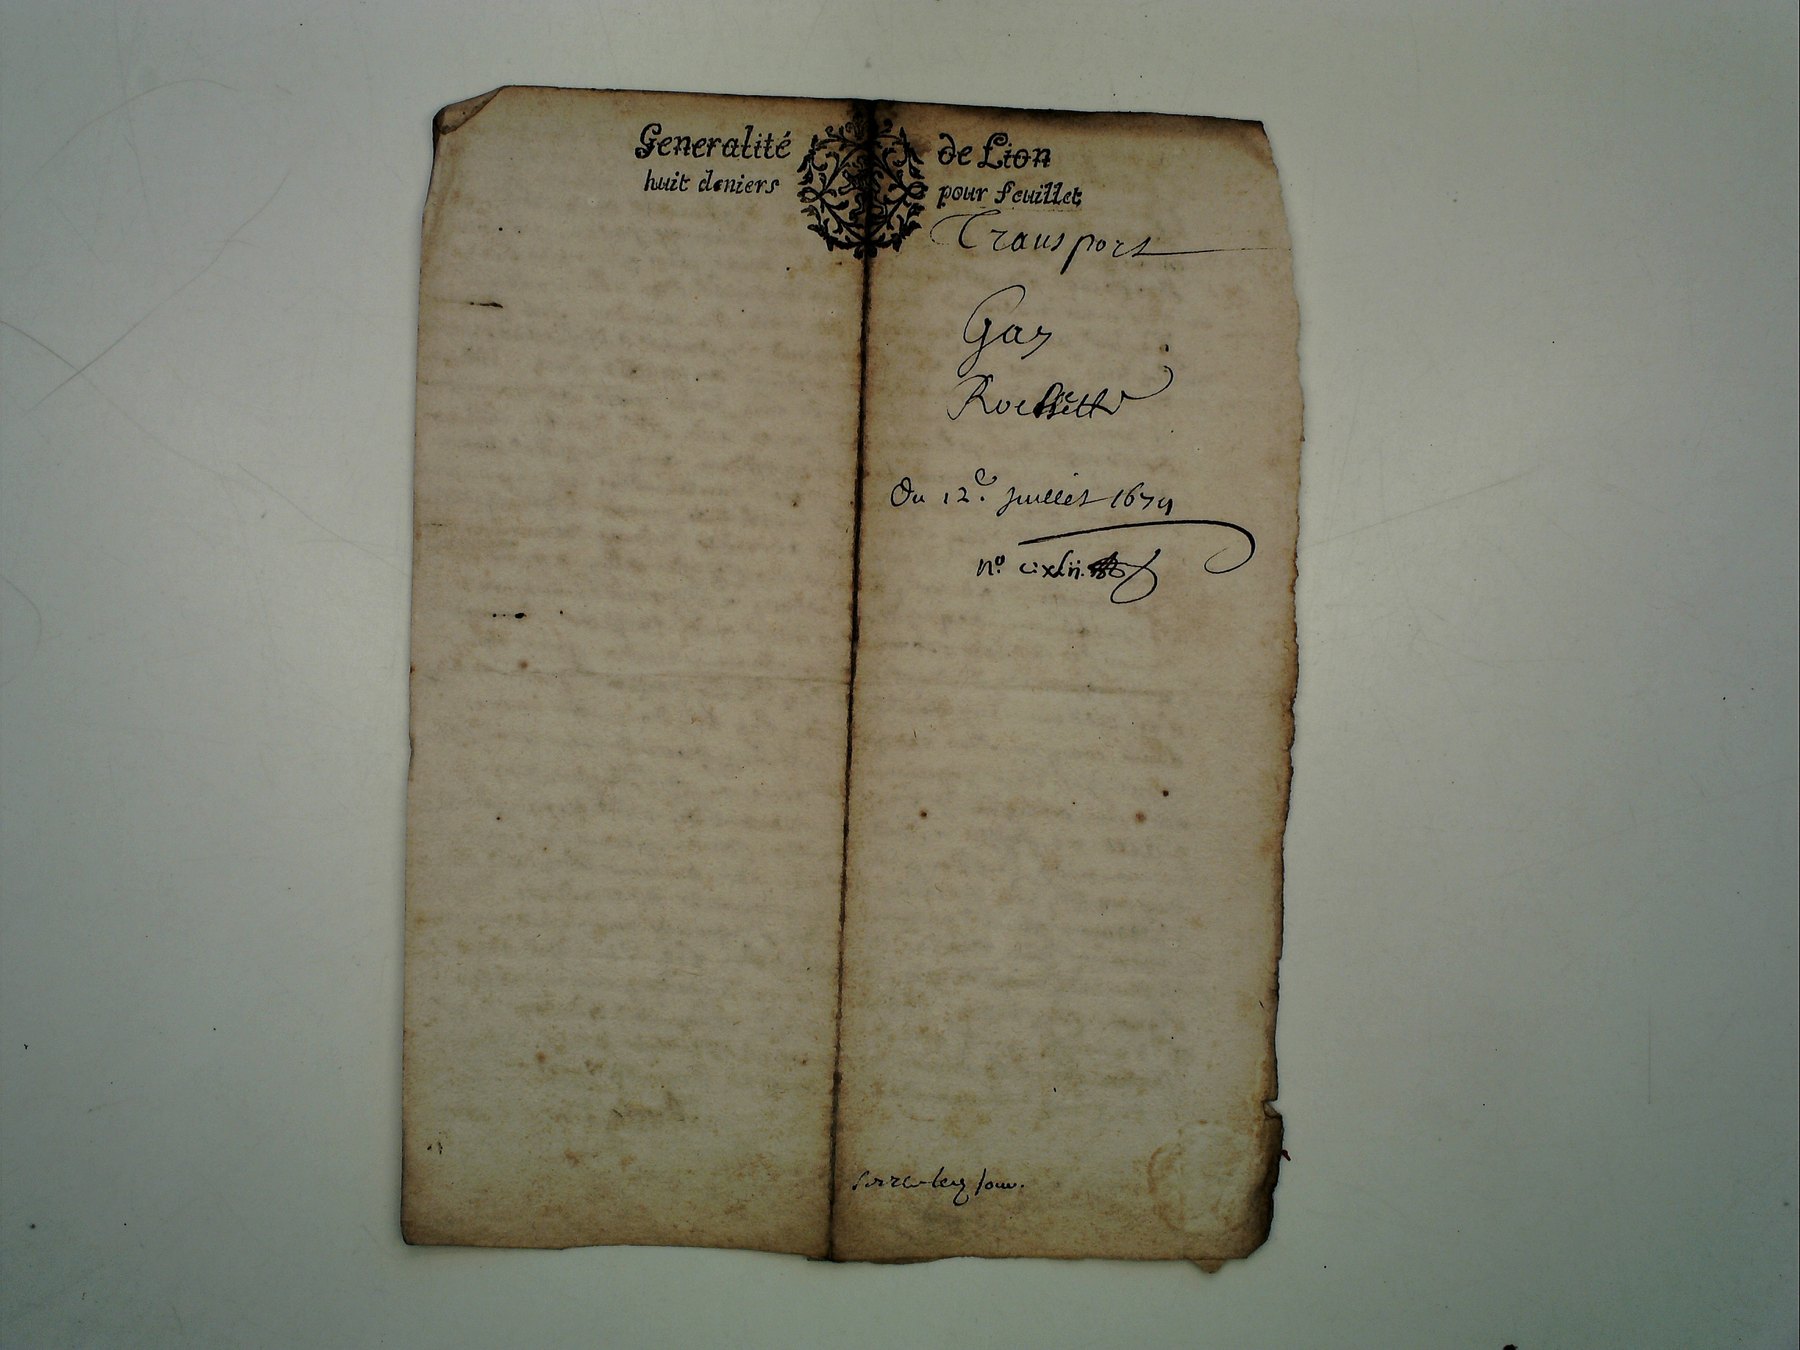 Generalité de Lion
huit deniers pour feuillet
Transport
Gay
Du 12e. Juillet 1679
n° cixlii.